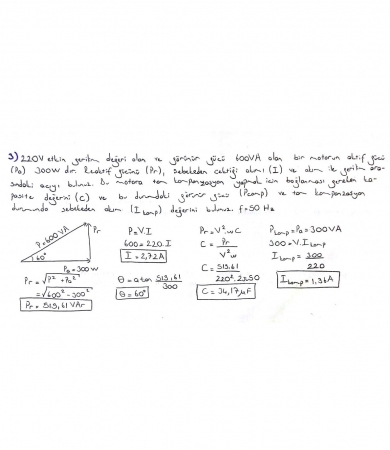 3) 220V etkin gerilim değeri olan ve görünür gücü 600VA olan bir motorun aktif gücü
(Pa) 300W dır. Reaktif gücünü (Pr), şebekeden çektiği akımı (I) ve akım ile gerilim ara-
sındaki açıyı bulunuz. Bu motora tam kompanzasyon yapmak için bağlanması gereken ka-
pasite değerini (C) ve bu durumdaki görünür gücü (Pkomp) ve tam kompanzasyon
durumunda şebekeden akım (Ikomp) değerini bulunuz. f=50 Hz
P=600VA
Pr
60°
Pa=300W
Pr = √P²-Pa²
= √600²-300²
Pr = 519,61 VAr
P=V.I
600=220.I
I=2,72A
θ = atan 519,61 / 300
θ = 60°
Pr=V²wC
C = Pr / V²w
C = 519,61 / 220².2π50
C = 34,17µF
Pkomp=Pa=300VA
300=V.Ikomp
Ikomp = 300 / 220
Ikomp=1,36A